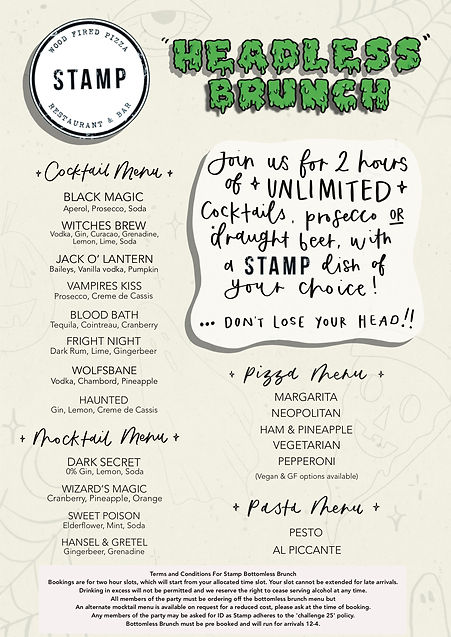 WOOD FIRED PIZZA
STAMP
RESTAURANT & BAR
"HEADLESS
BRUNCH"
Cocktail Menu
BLACK MAGIC
Aperol, Prosecco, Soda
WITCHES BREW
Vodka, Gin, Curacao, Grenadine,
Lemon, Lime, Soda
JACK O' LANTERN
Baileys, Vanilla vodka, Pumpkin
VAMPIRES KISS
Prosecco, Creme de Cassis
BLOOD BATH
Tequila, Cointreau, Cranberry
FRIGHT NIGHT
Dark Rum, Lime, Gingerbeer
WOLFSBANE
Vodka, Chambord, Pineapple
HAUNTED
Gin, Lemon, Creme de Cassis
Mocktail Menu
DARK SECRET
0% Gin, Lemon, Soda
WIZARD'S MAGIC
Cranberry, Pineapple, Orange
SWEET POISON
Elderflower, Mint, Soda
HANSEL & GRETEL
Gingerbeer, Grenadine
Join us for 2 hours
of + UNLIMITED +
Cocktails, prosecco OR
draught beer, with
a STAMP dish of
your choice!
... DON'T LOSE YOUR HEAD!!
Pizza Menu
MARGARITA
NEOPOLITAN
HAM & PINEAPPLE
VEGETARIAN
PEPPERONI
(Vegan & GF options available)
Pasta Menu
PESTO
AL PICCANTE
Terms and Conditions For Stamp Bottomless Brunch
Bookings are for two hour slots, which will start from your allocated time slot. Your slot cannot be extended for late arrivals.
Drinking in excess will not be permitted and we reserve the right to cease serving alcohol at any time.
All members of the party must be ordering off the bottomless brunch menu but
An alternate mocktail menu is available on request for a reduced cost, please ask at the time of booking.
Any members of the party may be asked for ID as Stamp adheres to the 'challenge 25' policy.
Bottomless Brunch must be pre booked and will run for arrivals 12-4.